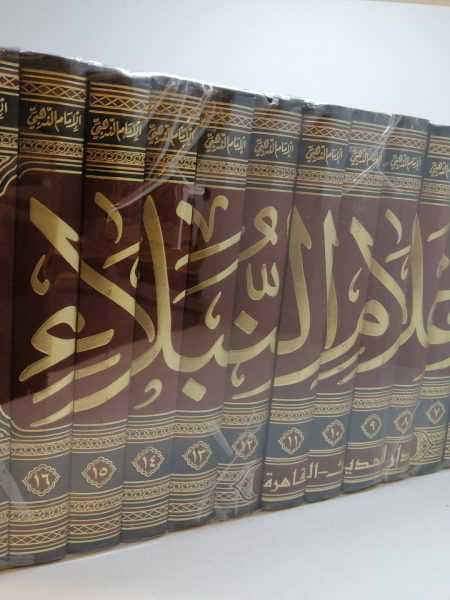 الإمام الذهبي الإمام الذهبي الإمام الذهبي الإمام الذهبي الإمام الذهبي الإمام الذهبي الإمام الذهبي الإمام الذهبي الإمام الذهبي
علام النبلاء
٧ ٨ ٩ ١٠ ١١ ١٢ ١٣ ١٤ ١٥ ١٦
دار الحديث القاهرة